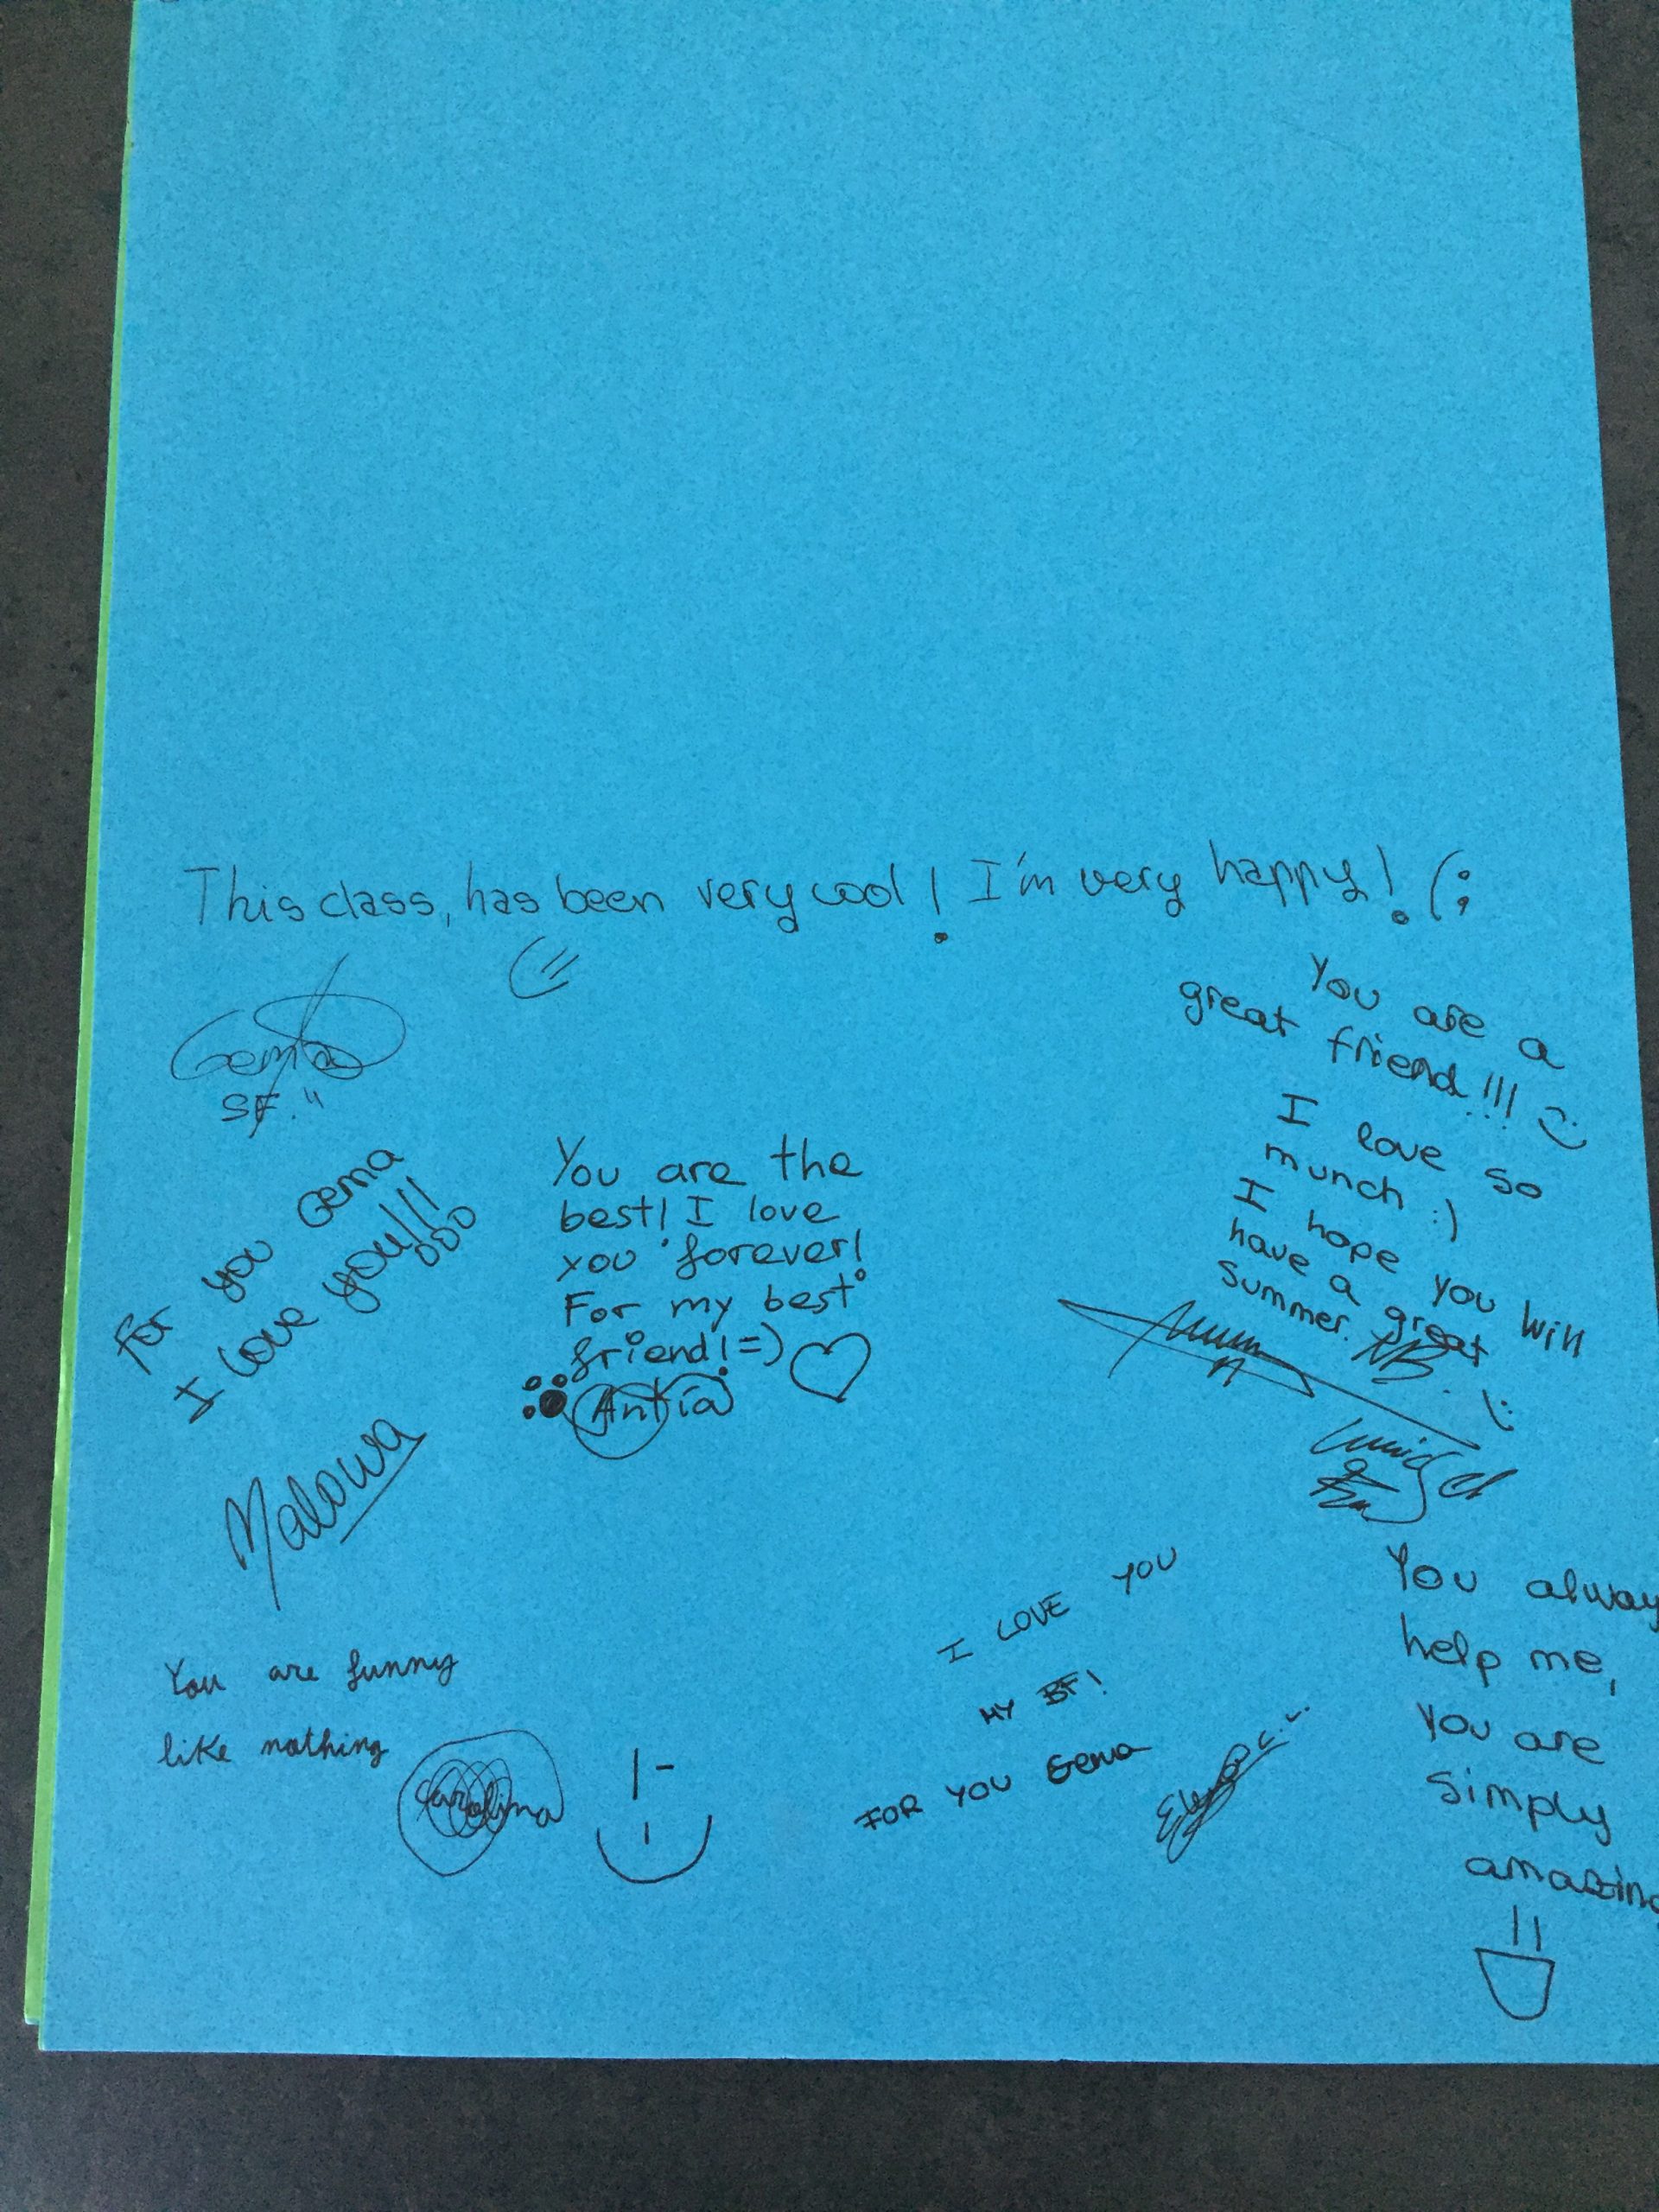 This class, has been very cool! I'm very happy! (:
Gema
SF.
You are a
great friend!!! :)
I love so
munch :)
I hope you will
have a great
summer. NB.
For you Gema
I love you!!!
You are the
best! I love
you forever!
For my best
friend! =)
Antía
You are funny
like nothing
Carolina
I LOVE YOU
MY BF!
FOR YOU Gema
You alway
help me,
you are
simply
amazing